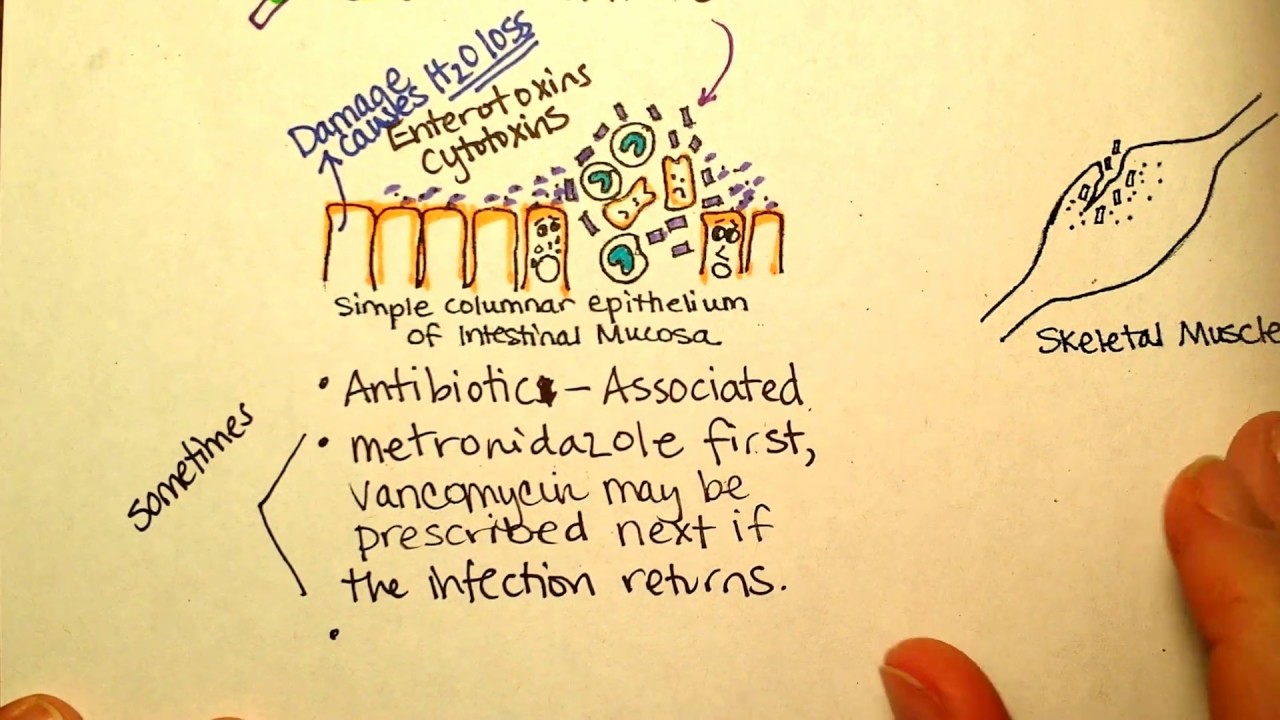 Damage
causes H2O loss
Enterotoxins
Cytotoxins
Simple columnar epithelium
of Intestinal Mucosa
Skeletal Muscle
• Antibiotic - Associated
sometimes
• metronidazole first,
vancomycin may be
prescribed next if
the infection returns.
•